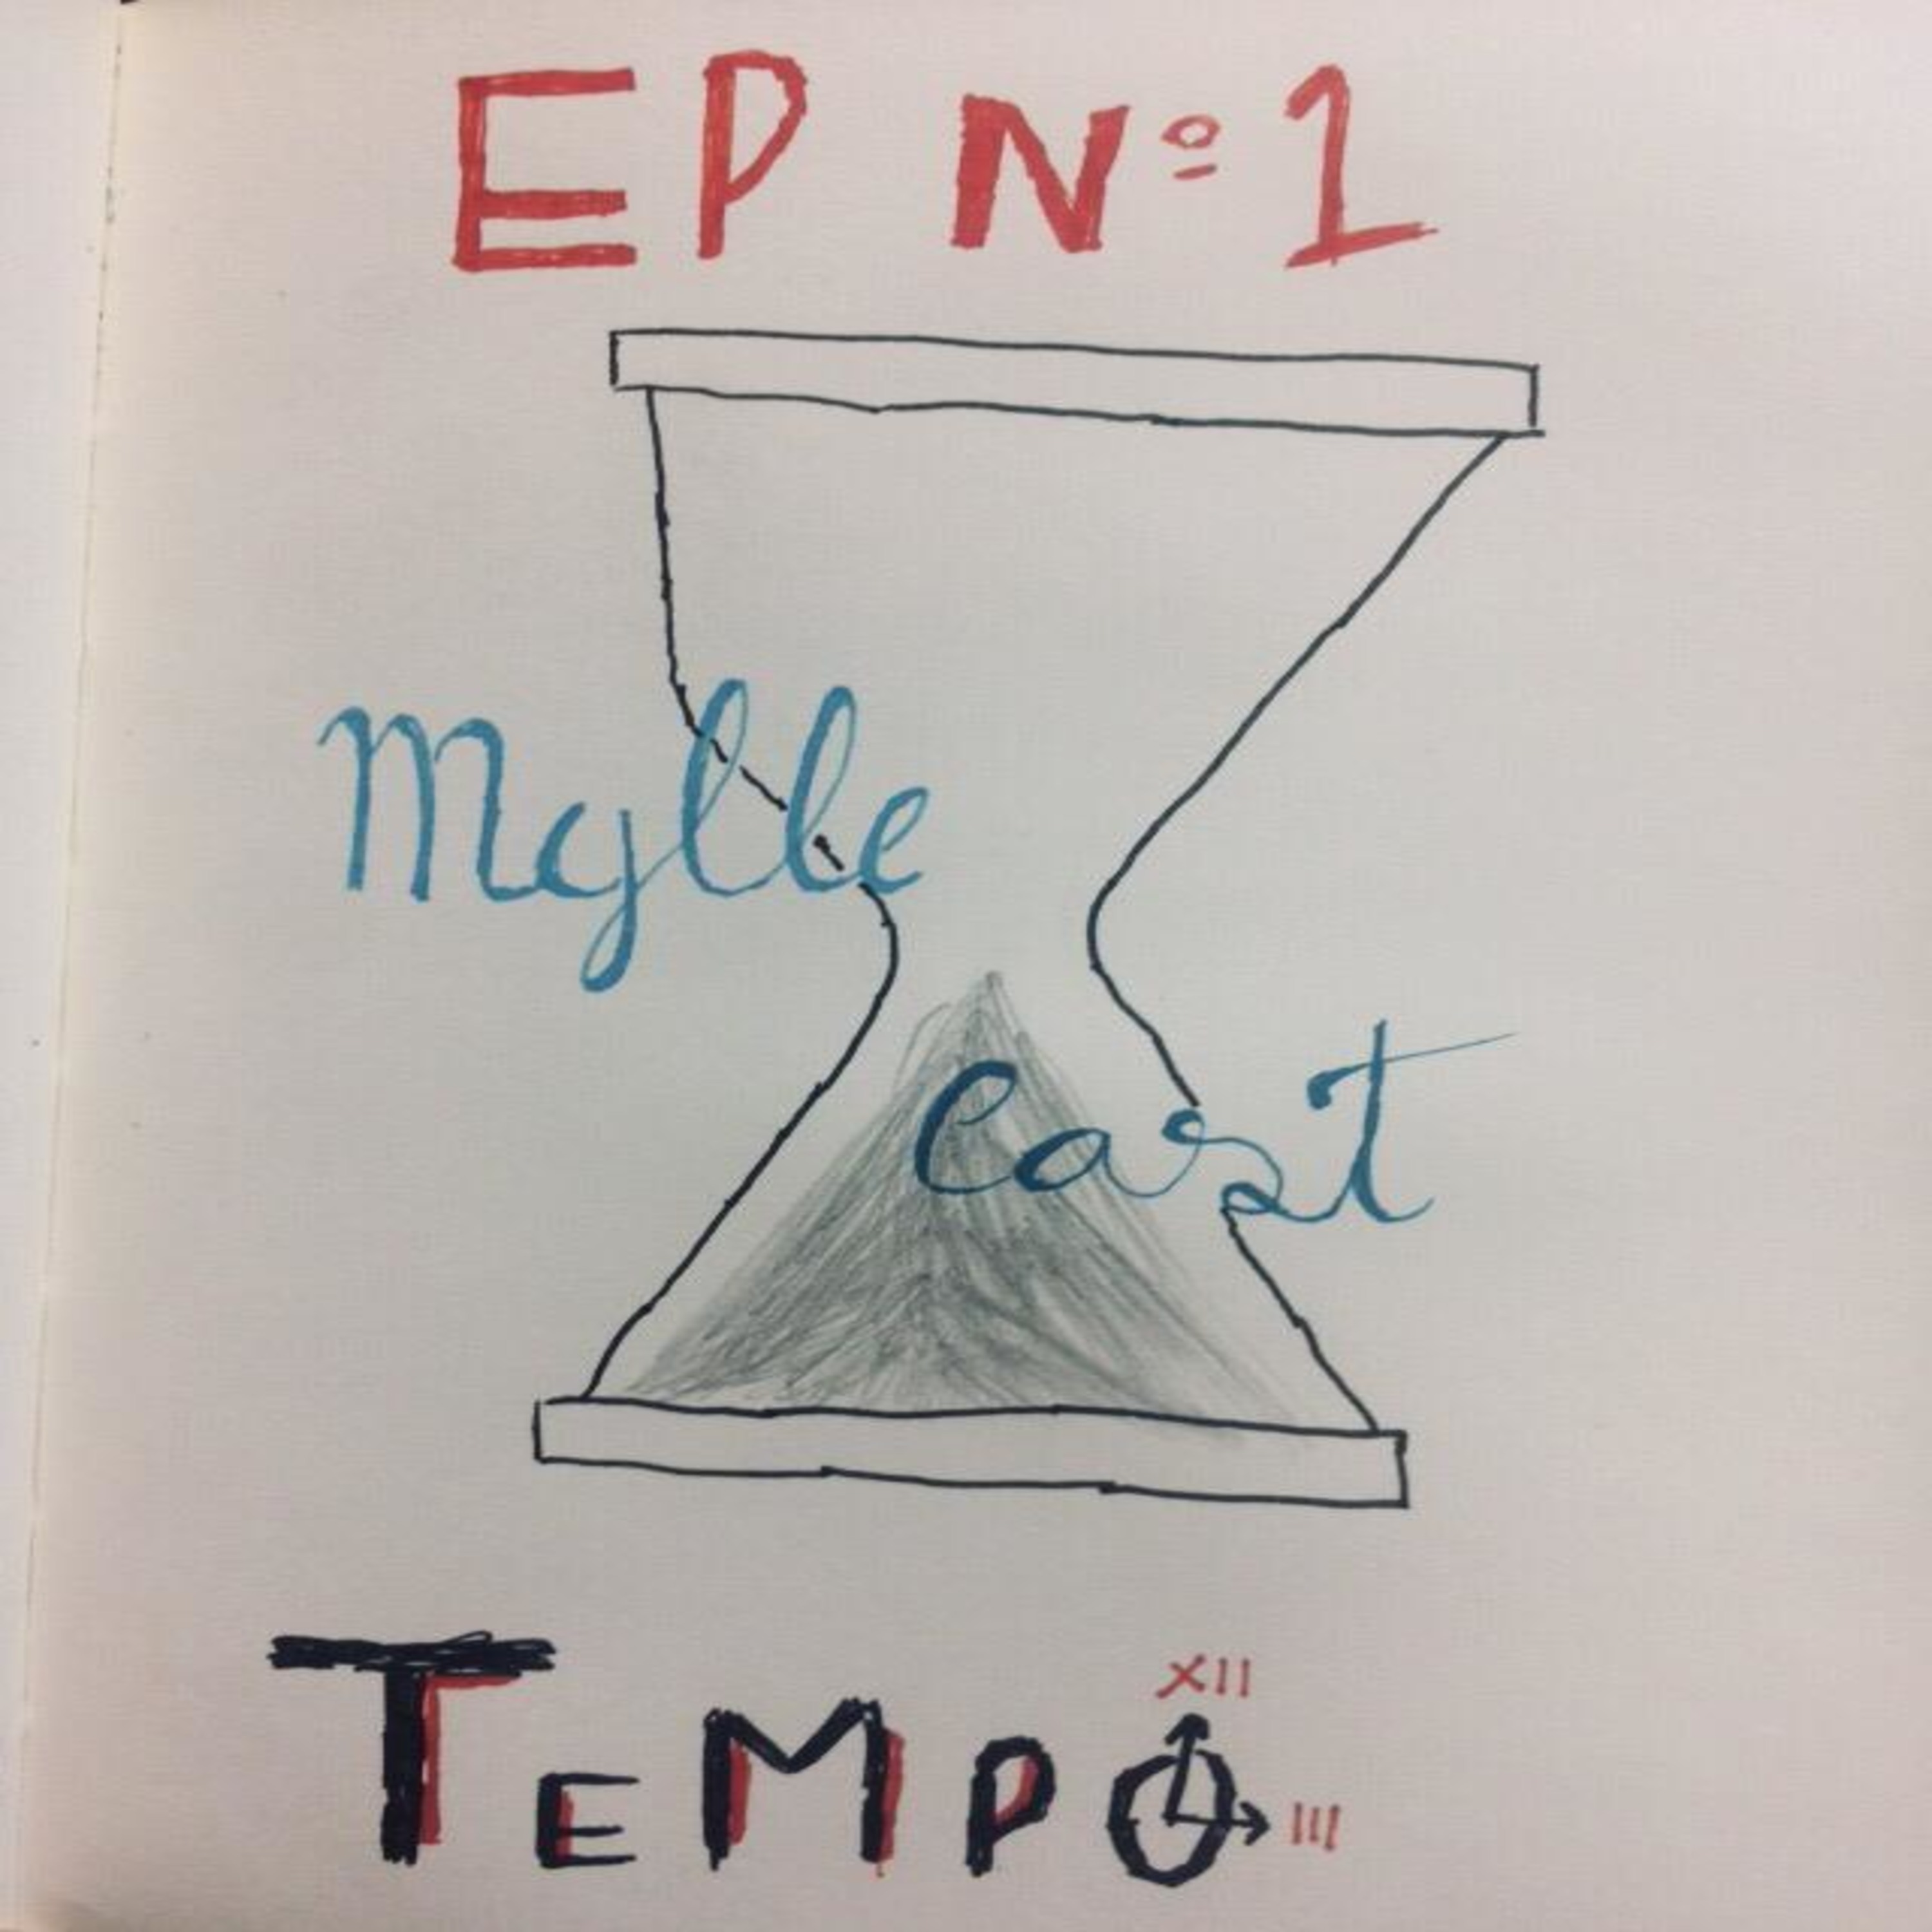 EP Nº 1
Mylle
Cast
TEMPO
XII
III